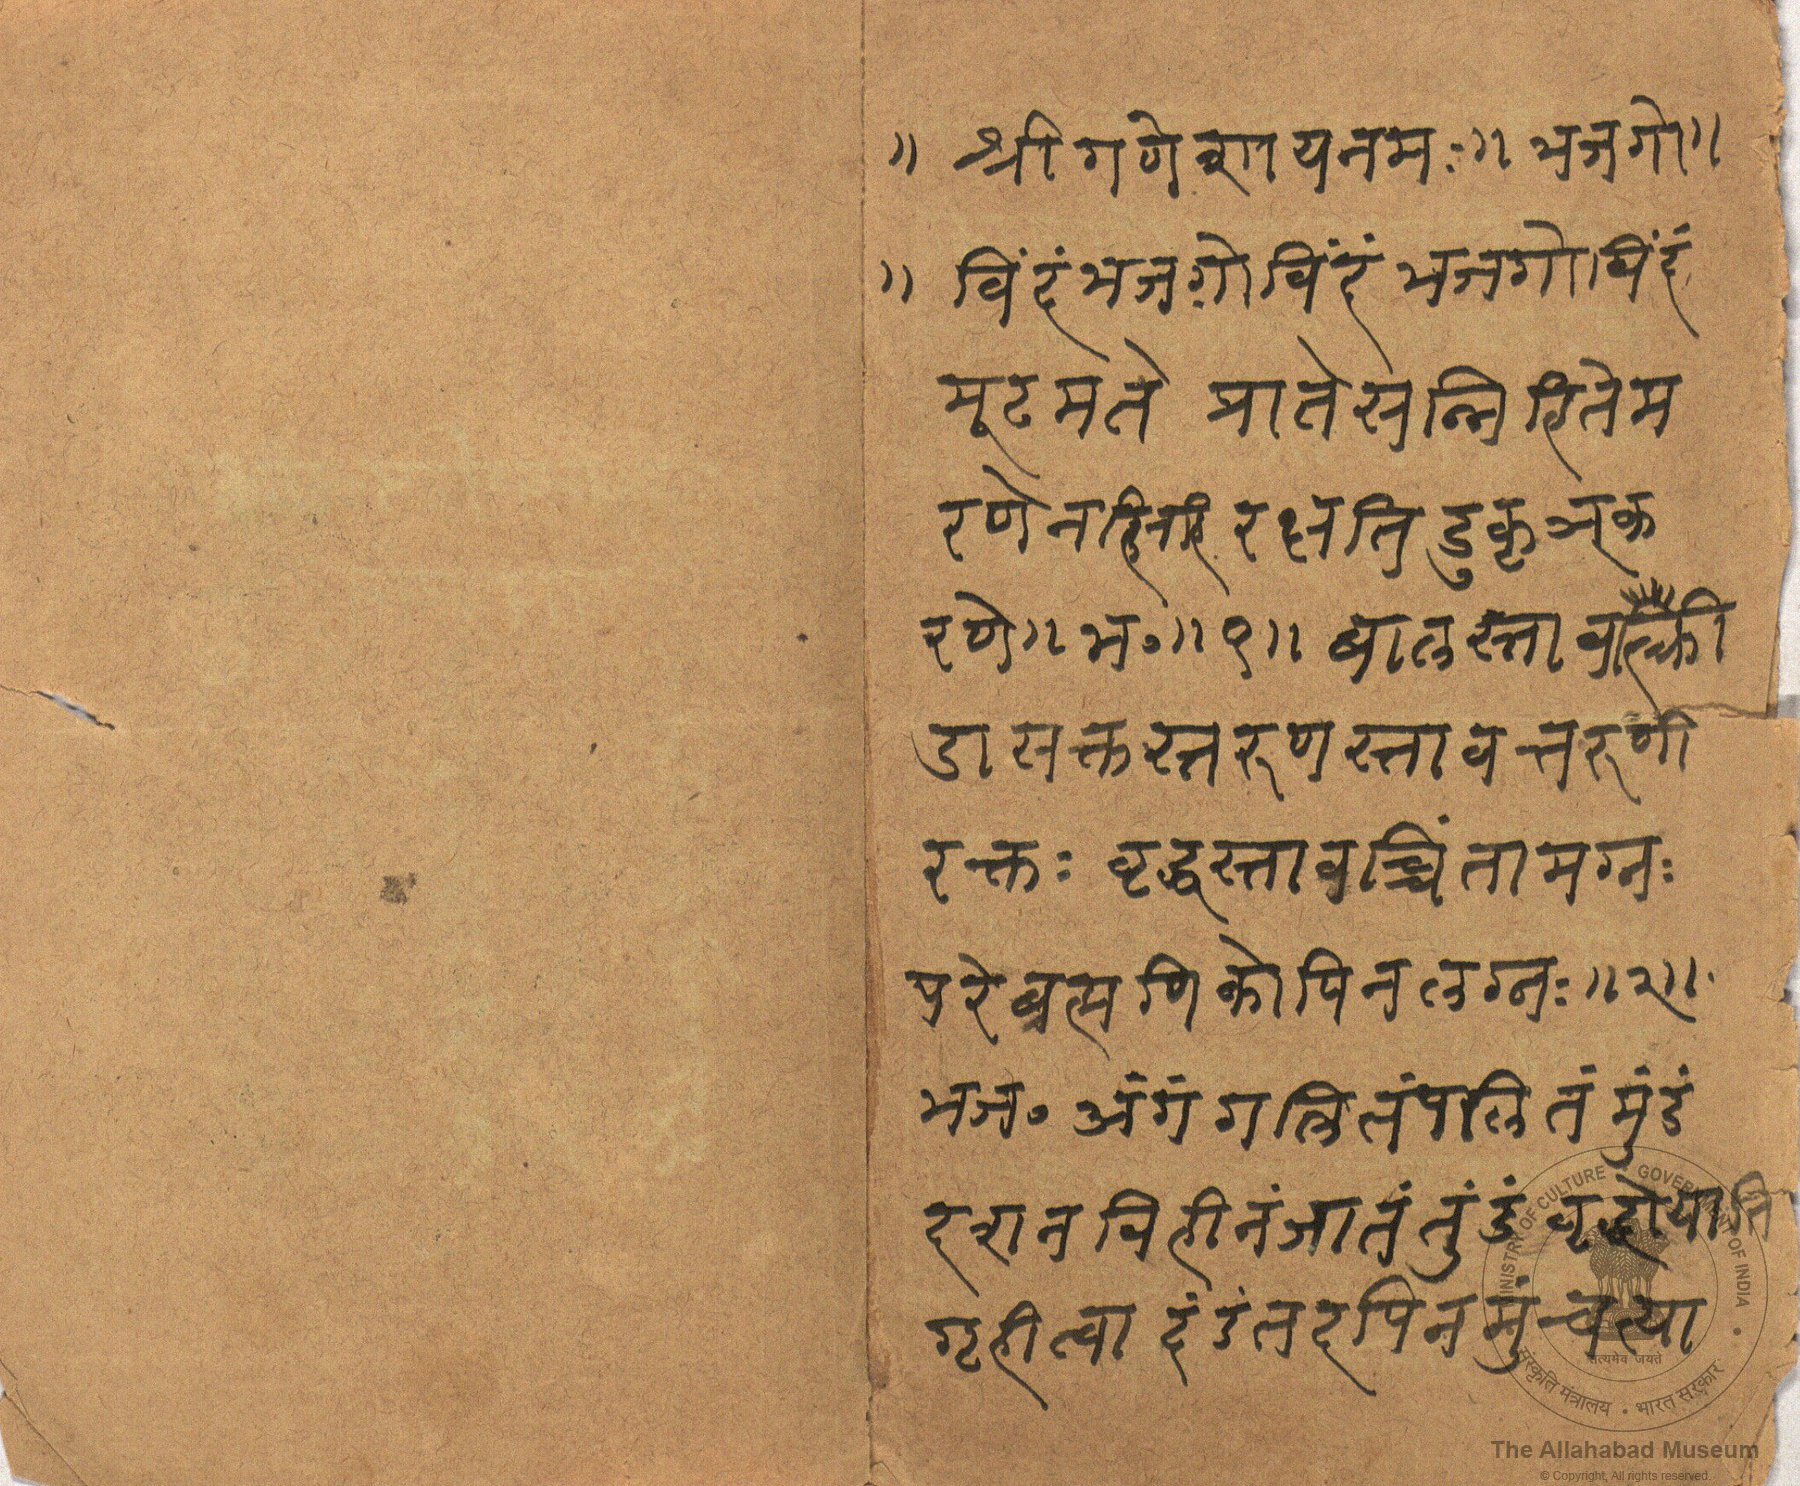 ॥ श्रीगणेशायनमः॥ भजगो॥
॥ विंदंभजगोविंदं भजगोविंदं
मूढमते प्राप्तेसन्निहितेम
रणेनहिनहिरक्षतिडुकृञ्क
रणे॥भ॰॥१॥ बालस्तावत्क्री
डासक्तस्तरुणस्तावत्तरुणी
रक्तः वृद्धस्तावच्चिंतामग्नः
परेब्रह्मणिकोपिनलग्नः॥२॥
भज॰ अंगंगलितंपलितंमुंडं
दशनविहीनंजातंतुंडंवृद्धोयाति
गृहीत्वा दंडंतदपिनमुंचत्या
MINISTRY OF CULTURE • GOVERNMENT OF INDIA
सत्यमेव जयते
संस्कृति मंत्रालय • भारत सरकार
The Allahabad Museum
© Copyright, All rights reserved.